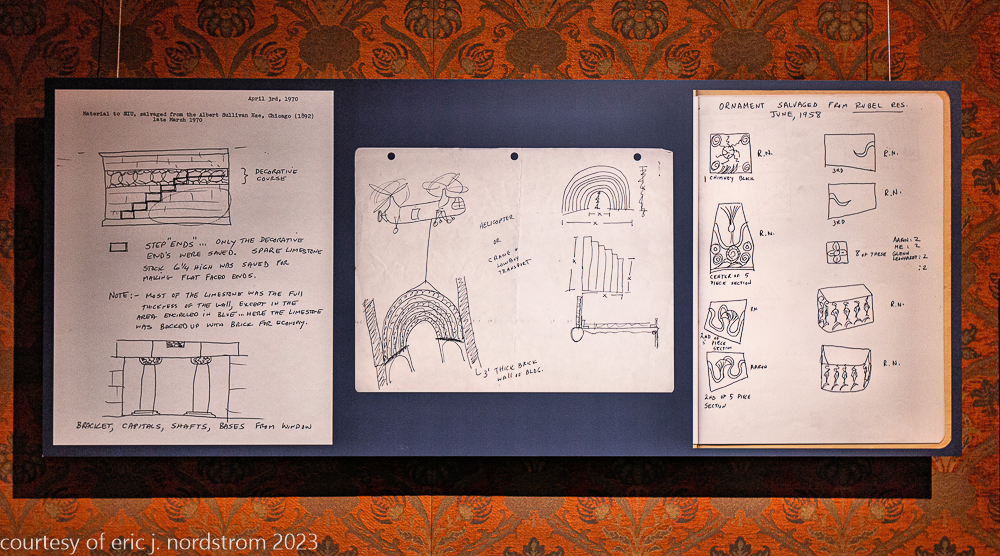 April 3rd, 1970
Material to SIU, salvaged from the Albert Sullivan Hse, Chicago (1892)
late March 1970
DECORATIVE
COURSE
STEP "ENDS"... ONLY THE DECORATIVE
END'S WERE SAVED. SPARE LIMESTONE
STOCK 6 1/4 HIGH WAS SAVED FOR
MAKING FLAT FACED ENDS.
NOTE:- MOST OF THE LIMESTONE WAS THE FULL
THICKNESS OF THE WALL, EXCEPT IN THE
AREA ENCIRCLED IN BLUE... HERE THE LIMESTONE
WAS BACKED UP WITH BRICK FOR ECONOMY.
BRACKET, CAPITALS, SHAFTS, BASES FROM WINDOW
HELICOPTER
OR
CRANE &
LOWBOY
TRANSPORT
3' THICK BRICK
WALL OF BLDG.
X
X
X
X
X
ORNAMENT SALVAGED FROM RUBEL RES.
JUNE, 1958
R.N.
1 CHIMNEY BLOCK
R.N.
CENTER OF 5
PIECE SECTION
RN
2ND OF
5 PIECE
SECTION
AARON
2ND OF 5 PIECE
SECTION
R.N.
3RD
R.N.
3RD
8 OF THESE
AARON: 2
ME: 2
GLENN
: 2
: 2
R.N.
R.N.
courtesy of eric j. nordstrom 2023